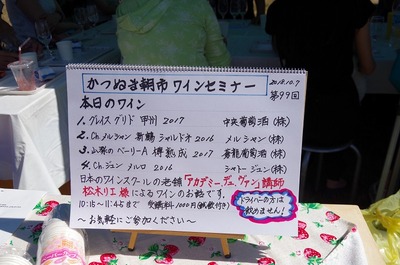 かつぬま朝市 ワインセミナー
2018.10.7
第99回
本日のワイン
1. グレイス グリド 甲州 2017 中央葡萄酒(株)
2. Ch.メルシャン 新鶴 シャルドネ 2016 メルシャン(株)
3. 山梨のベーリーA 樽熟成 2017 蒼龍葡萄酒(株)
4. Ch.ジュン メルロ 2016 シャトージュン(株)
日本のワインスクールの老舗「アカデミー・デュ・ヴァン」講師
松木リエ 娘によるワインのお話です。
10:15~11:45まで 受講料1000円(試飲付き)
~お気軽にご参加ください~
ドライバーの方は
飲めません!